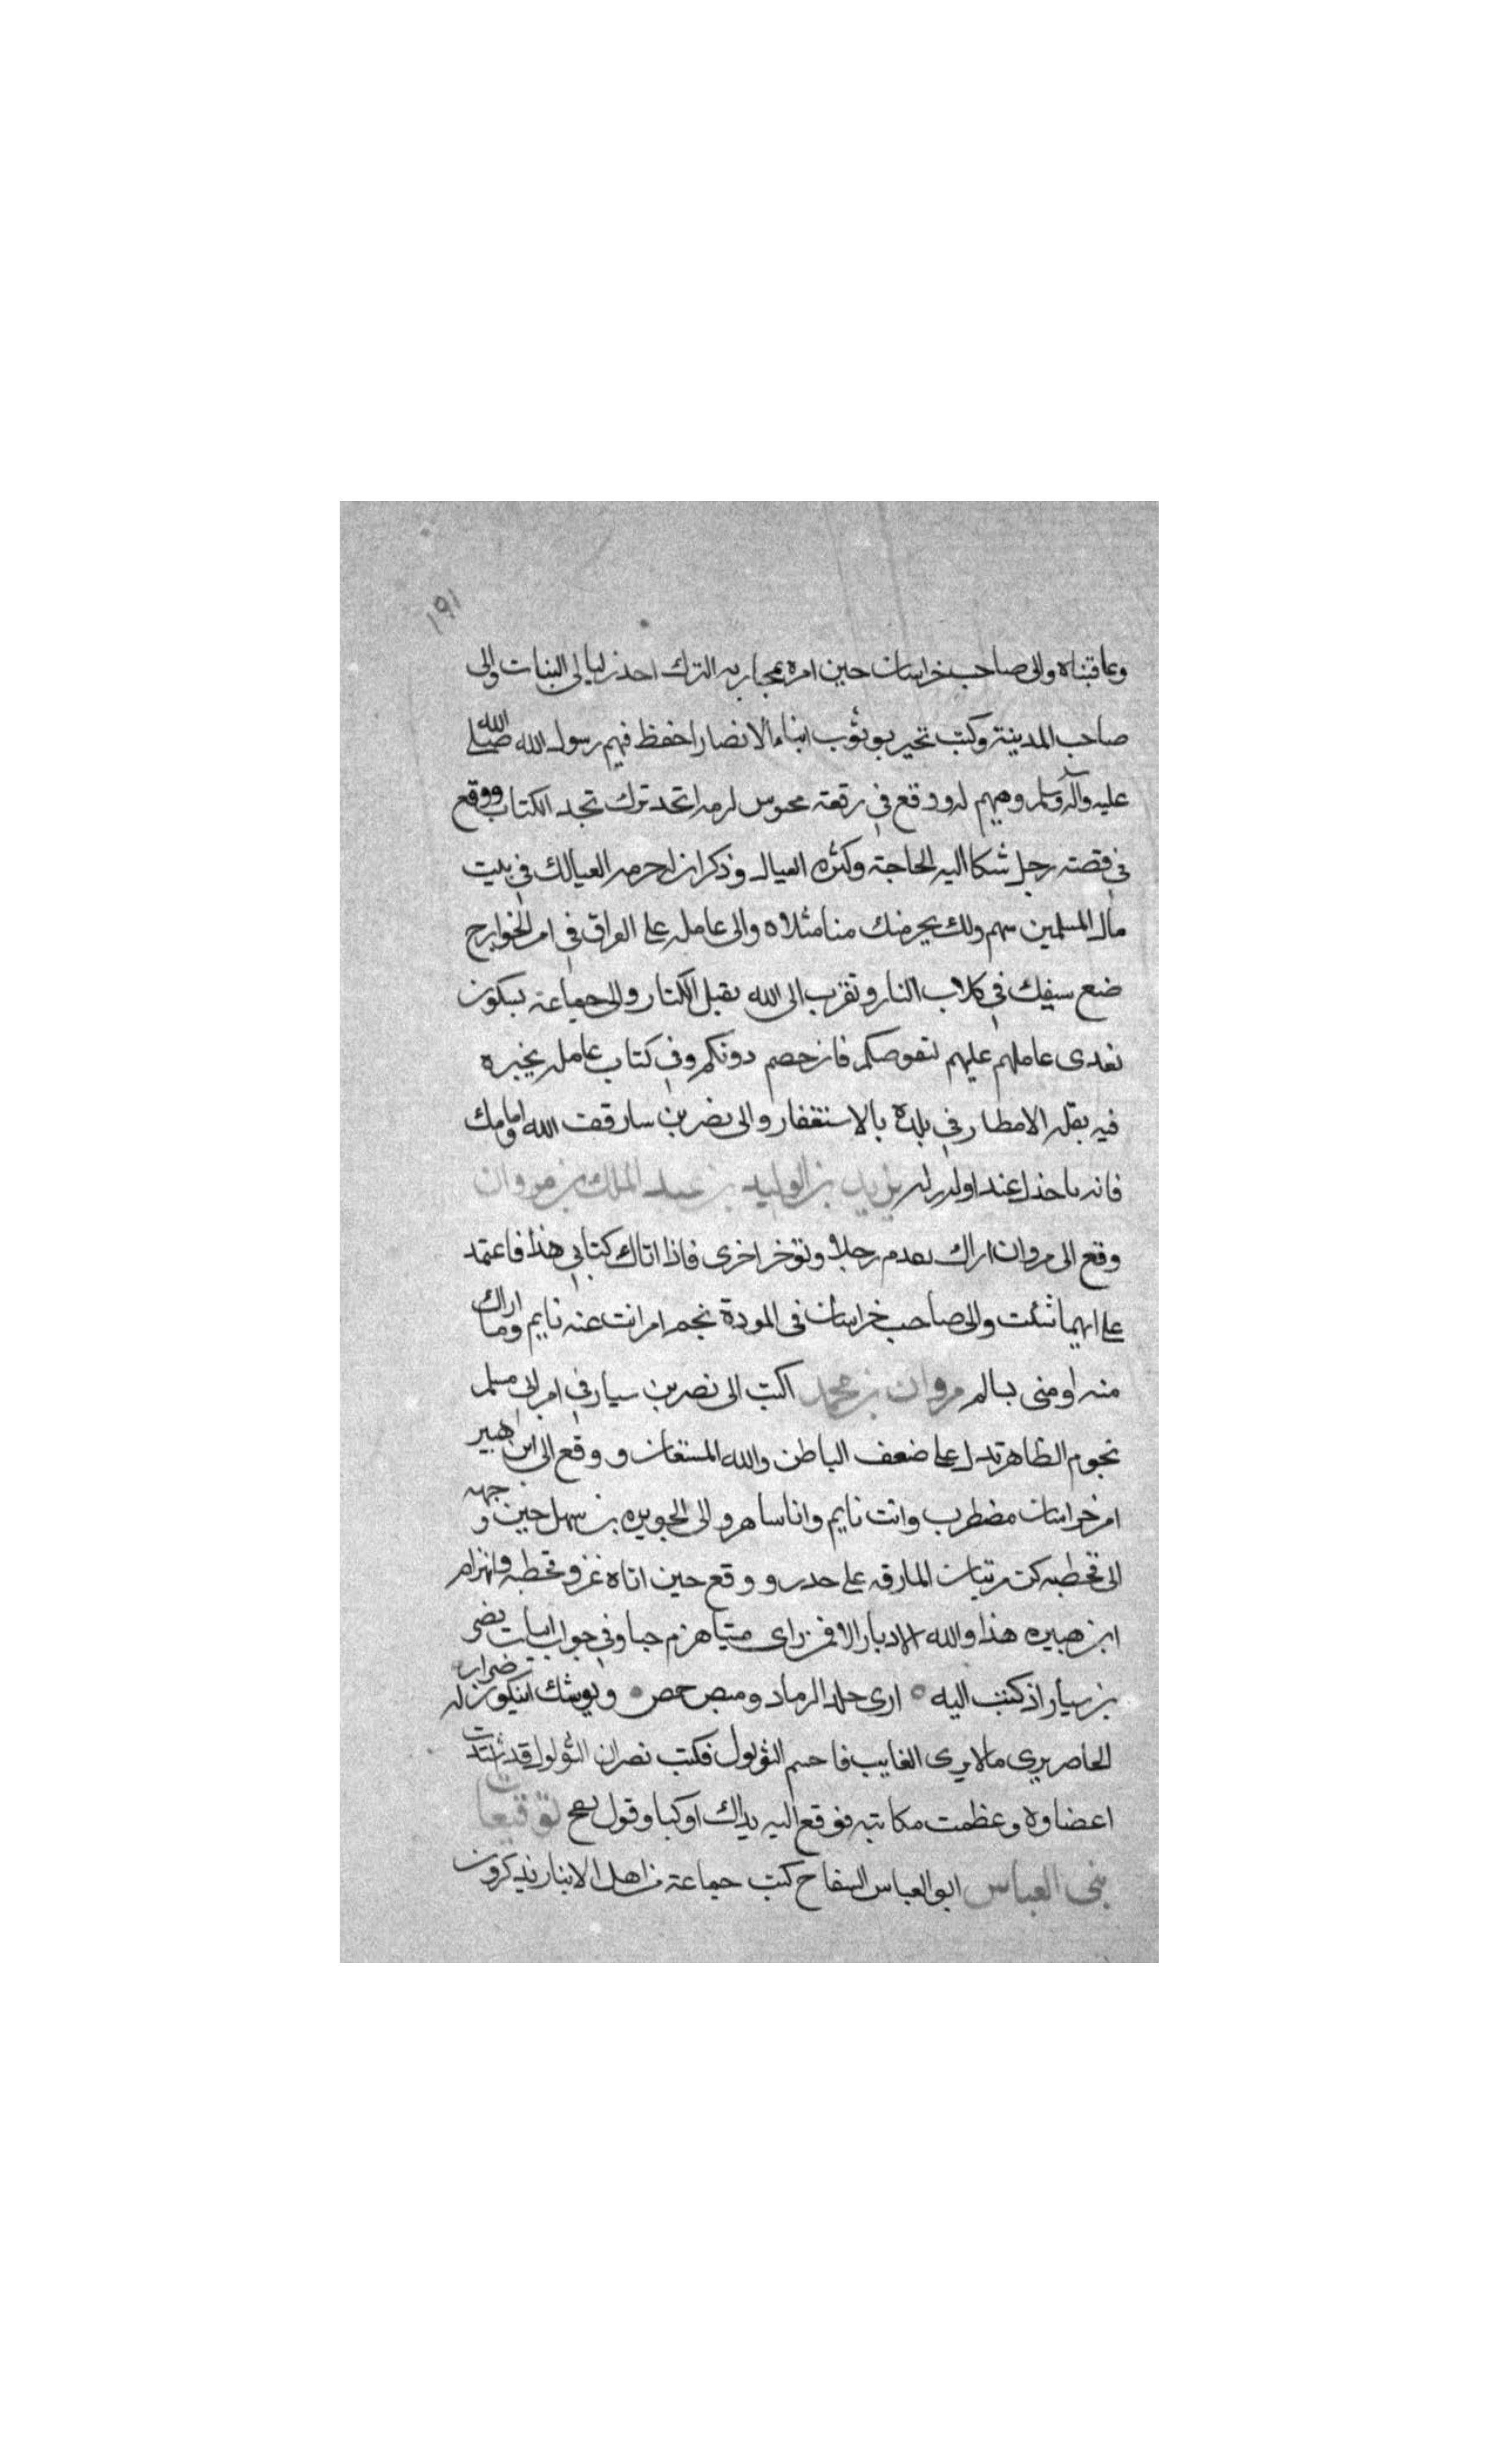 ١٩١
وعاقبناه والى صاحب خراسان حين امره بمحاربه الترك احذر ليالى البنات والى
صاحب المدينة وكتب يخبر بوثوب ابناء الانصار احفظ فيهم رسول الله صلى الله
عليه وآله وسلم وهبهم له ووقع فى رقعة محبوس لزمه الحد ترك بحد الكتاب ووقع
فى قصة رجل شكا اليه الحاجة وكثره العيال وذكر ان له حرمه العيالك فى بيت
مال المسلمين سهم ولك بحرمتك منا مثلاه والى عامله على العراق فى امر الخوارج
ضع سيفك فى كلاب النار وتقرب الى الله بقتل الكفار والى جماعة يشكون
تعدى عاملهم عليهم لنفوضكم فان خصم دونكم وفى كتاب عامله يخبره
فيه بقله الامطار فى بلده بالاستغفار والى نصر بن سيار قفت الله وامامك
فانه ياخذ عند اوله زله يزيد بن الوليد بن عبد الملك بن مروان
وقع الى مروان اراك تقدم رجلا وتؤخر اخرى فاذا اتاك كتابى هذا فاعتمد
على ايهما شئت والى صاحب خراسان فى المودة نجم امر انت عنه نايم وما اراك
منه او منى بسالم مروان بن محمد اكتب الى نصر بن سيار فى امر ابى مسلم
نجوم الظاهر تدل على ضعف الباطن والله المستعان ووقع الى ابن هبير
امر خراسان مضطرب وانت نايم وانا ساهر والى الحويره بن سهل حين وجهه
الى قحطبه كن من بيات المارقه على حذر ووقع حين اتاه غزو قحطبه وانهزام
ابن هبيره هذا والله الادبار الا فمن راى ميتا هزم حيا وفى جواب ابيات نصر
بن سيار اذ كتب اليه ه ارى خلل الرماد وميض جمر ه ويوشك ان يكون له ضرام
الحاضر يرى ما لا يرى الغايب فاحسم الثولول فكتب نصر ان الثولول قد امتدت
اعضاوه وعظمت مكانته فوقع اليه يداك اوكتا وفوك نفخ توقيعات
بنى العباس ابو العباس السفاح كتب جماعة من اهل الانبار يذكرون